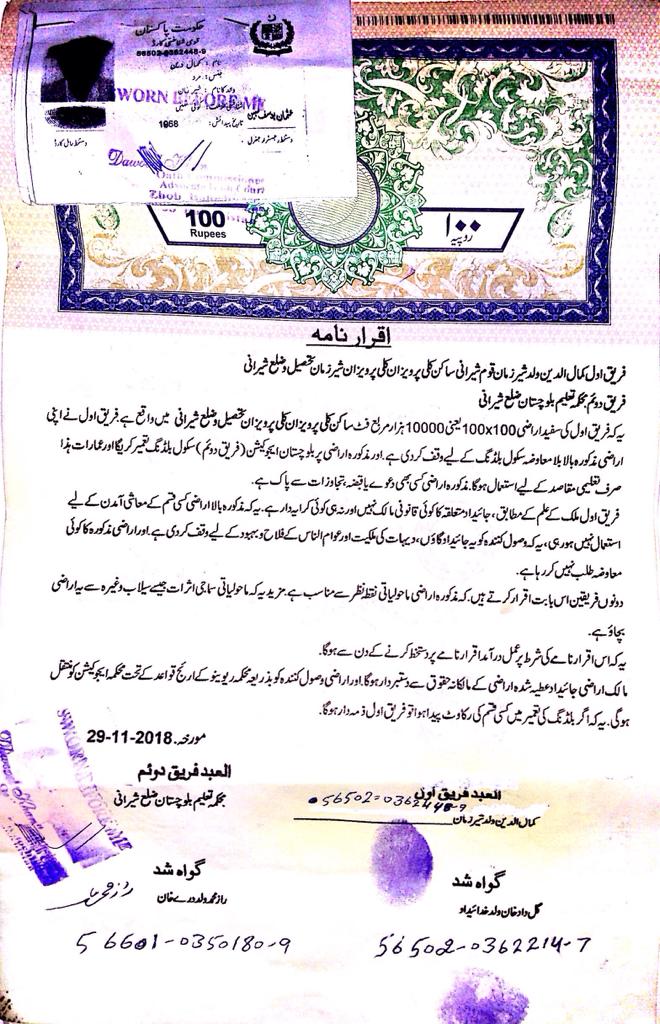 حکومت پاکستان
قومی شناختی کارڈ
56502-0362448-9
جنس: مرد
1968
SWORN BEFORE ME
Oath Commissioner
100
Rupees
۱۰۰
روپیہ
اقرار نامہ
فریق اول کمال الدین ولد شیر زمان قوم شیرانی ساکن کلی پرویزان کلی پرویزان شیر زمان تحصیل و ضلع شیرانی
فریق دوئم: محکمہ تعلیم بلوچستان ضلع شیرانی
یہ کہ فریق اول کی سفید اراضی 100x100 یعنی 10000 ہزار مربع فٹ ساکن کلی پرویزان کلی پرویزان تحصیل و ضلع شیرانی میں واقع ہے فریق اول نے اپنی
اراضی مذکورہ بالا بلا معاوضہ سکول بلڈنگ کے لیے وقف کر دی ہے۔ اور مذکورہ اراضی پر بلوچستان ایجوکیشن (فریق دوئم) سکول بلڈنگ تعمیر کریگا اور عمارات ہذا
صرف تعلیمی مقاصد کے لیے استعمال ہوگا۔ مذکورہ اراضی کسی بھی دعوے یا قبضہ، تجاوزات سے پاک ہے۔
فریق اول ملک کے علم کے مطابق، جائیداد متعلقہ کا کوئی قانونی مالک نہیں اور نہ ہی کوئی کرایہ دار ہے۔ یہ کہ مذکورہ بالا اراضی کسی قسم کے معاشی آمدن کے لیے
استعمال نہیں ہو رہی، یہ کہ وصول کنندہ کو یہ جائیداد گاؤں، دیہات کی ملکیت اور عوام الناس کے فلاح و بہبود کے لیے وقف کر دی ہے۔ اور اراضی مذکورہ کا کوئی
معاوضہ طلب نہیں کر رہا ہے۔
دونوں فریقین اس بابت اقرار کرتے ہیں۔ کہ مذکورہ اراضی ماحولیاتی نقطہ نظر سے مناسب ہے۔ مزید یہ کہ ماحولیاتی سماجی اثرات جیسے سیلاب وغیرہ سے یہ اراضی
بچاؤ ہے۔
یہ کہ اس اقرار نامے کی شرط پر عمل درآمد اقرار نامے پر دستخط کرنے کے دن سے ہوگا۔
مالک اراضی جائیداد عطیہ شدہ اراضی کے مالکانہ حقوق سے دستبردار ہوگا۔ اور اراضی وصول کنندہ کو بذریعہ محکمہ ریونیو کے رائج قواعد کے تحت محکمہ ایجوکیشن کو منتقل
ہوگی۔ یہ کہ اگر بلڈنگ کی تعمیر میں کسی قسم کی رکاوٹ پیدا ہوا تو فریق اول ذمہ دار ہوگا۔
مورخہ 29-11-2018
العبد فریق اول
56502-0362448-9
کمال الدین ولد شیر زمان
العبد فریق دوئم
محکمہ تعلیم بلوچستان ضلع شیرانی
SWORN BEFORE ME
گواہ شد
گل داد خان ولد خدائیداد
56502-0362214-7
گواہ شد
راز محمد ولد دورے خان
56601-0350180-9